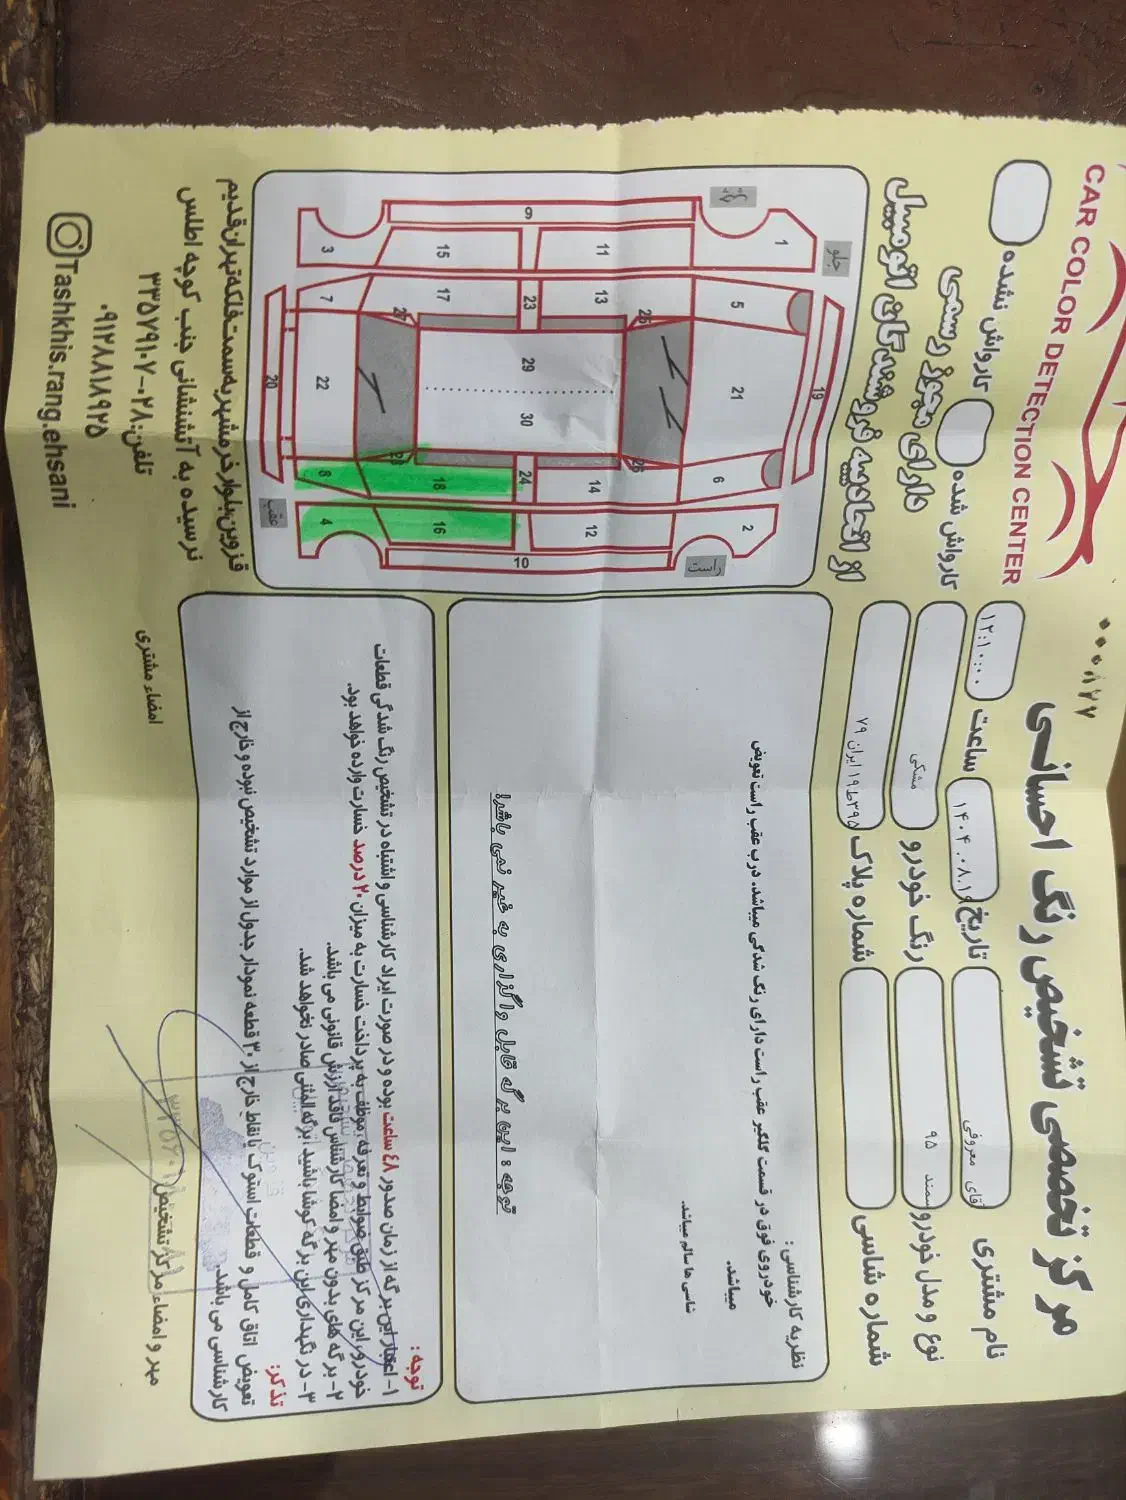 ۰۰۰۸۷۷
مرکز تخصصی تشخیص رنگ احسانی
CAR COLOR DETECTION CENTER
نام مشتری
آقای معروفی
تاریخ
ساعت
۱۲:۱۰:۰۰
کارواش شده
کارواش نشده
نوع و مدل خودرو
سمند ۹۵
رنگ خودرو
مشکی
دارای مجوز رسمی
شماره شاسی
شماره پلاک
۳۹۵ط۱۹ ایران ۷۹
از اتحادیه فروشندگان اتومبیل
نظریه کارشناسی :
خودروی فوق در قسمت گلگیر عقب راست دارای رنگ شدگی میباشد. درب عقب راست تعویض
میباشد.
شاسی ها سالم میباشد.
توجه : این برگه قابل واگذاری به غیر نمی باشد!
جلو
راست
عقب
1
2
3
4
5
6
7
8
9
10
11
12
13
14
15
16
17
18
19
20
21
22
23
24
25
26
27
28
29
30
توجه :
۱- اعتبار این برگه از زمان صدور ۴۸ ساعت بوده و در صورت ایراد کارشناسی و اشتباه در تشخیص رنگ شدگی قطعات
خودرو، این مرکز طبق ضوابط و تعرفه، موظف به پرداخت خسارت به میزان ۲۰ درصد خسارت وارده خواهد بود.
۲- برگه های بدون مهر و امضا کارشناس فاقد ارزش قانونی می باشد.
۳- در نگهداری این برگه کوشا باشید، برگه المثنی صادر نخواهد شد.
تذکر:
تعویض اتاق کامل و قطعات استوک یا نقاط خارج از ۳۰ قطعه نمودار جدول از موارد تشخیص نبوده و خارج از
کارشناسی می باشد.
مهر و امضاء مرکز تشخیص
امضاء مشتری
قزوین،بلوار خرمشهر به سمت فلکه تهران قدیم
نرسیده به آتشنشانی جنب کوچه اطلس
تلفن: ۲۸-۳۳۵۷۹۱۰۷
۰۹۱۲۸۸۱۸۹۲۵
Tashkhis.rang.ehsani